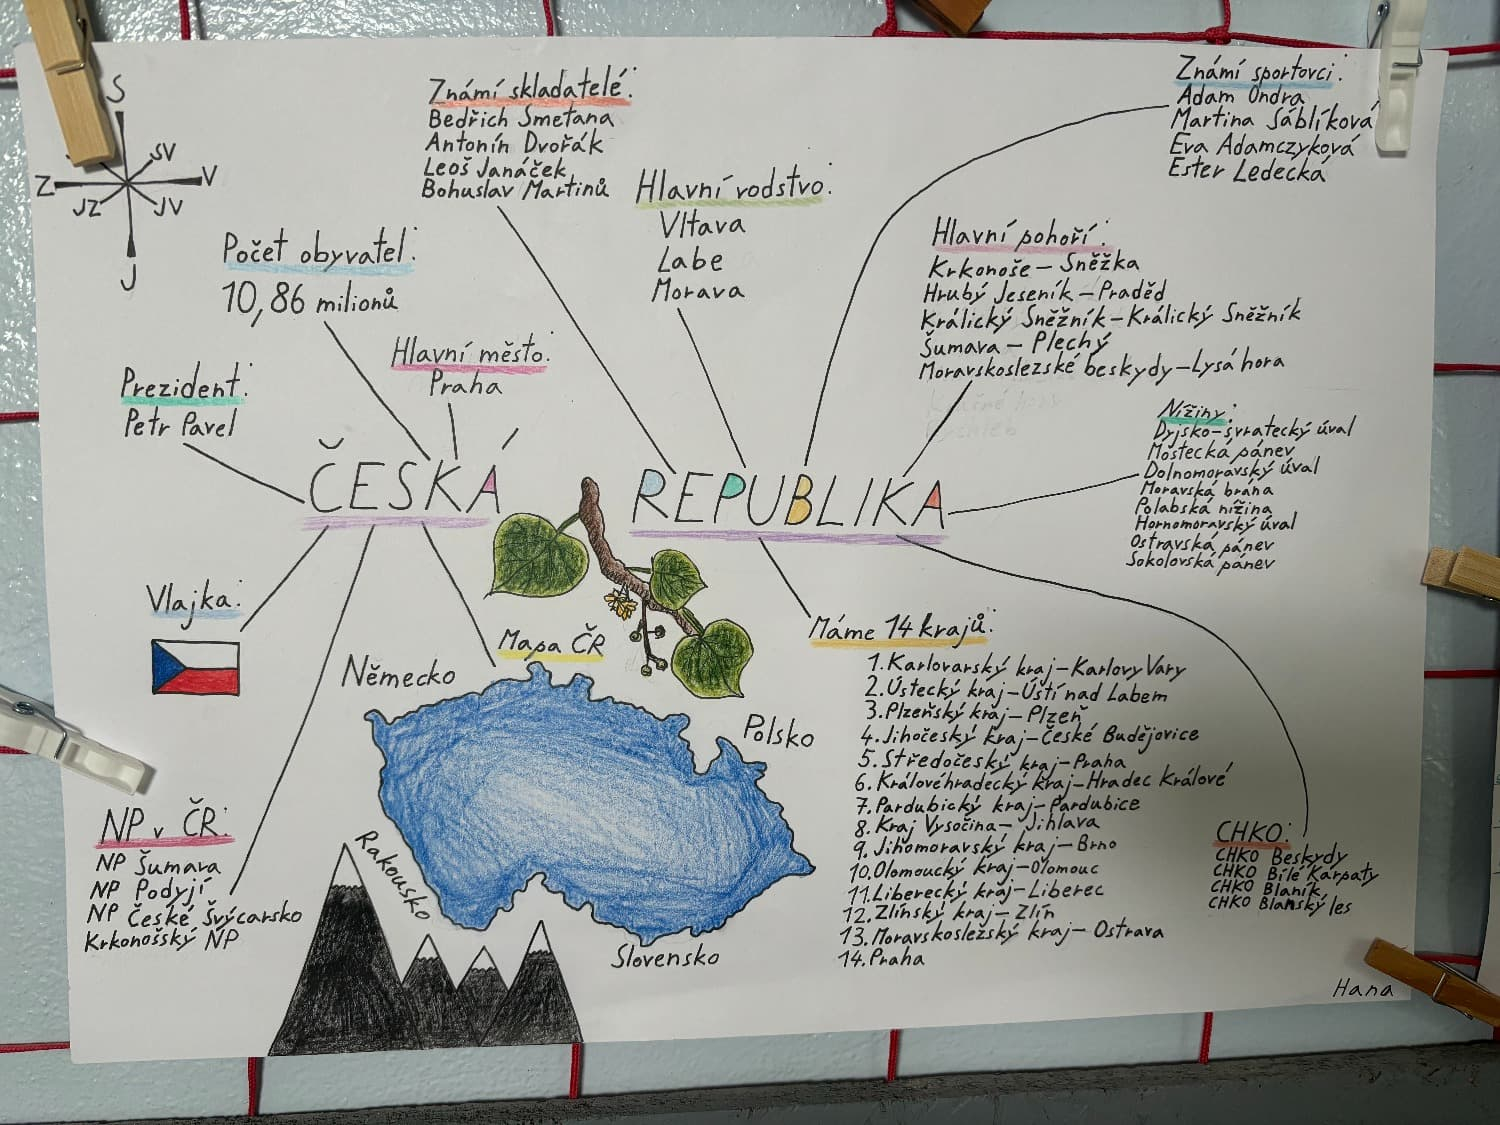 S
SV
V
JV
J
JZ
Z
Známí skladatelé:
Bedřich Smetana
Antonín Dvořák
Leoš Janáček
Bohuslav Martinů
Hlavní vodstvo:
Vltava
Labe
Morava
Známí sportovci:
Adam Ondra
Martina Sáblíková
Eva Adamczyková
Ester Ledecká
Počet obyvatel:
10,86 milionů
Hlavní město:
Praha
Prezident:
Petr Pavel
Hlavní pohoří:
Krkonoše – Sněžka
Hrubý Jeseník – Praděd
Králický Sněžník – Králický Sněžník
Šumava – Plechý
Moravskoslezské beskydy – Lysá hora
Nížiny:
Dyjsko-svratecký úval
Mostecká pánev
Dolnomoravský úval
Moravská brána
Polabská nížina
Hornomoravský úval
Ostravská pánev
Sokolovská pánev
ČESKÁ REPUBLIKA
Vlajka:
Mapa ČR
Německo
Polsko
Rakousko
Slovensko
Máme 14 krajů:
1. Karlovarský kraj – Karlovy Vary
2. Ústecký kraj – Ústí nad Labem
3. Plzeňský kraj – Plzeň
4. Jihočeský kraj – České Budějovice
5. Středočeský kraj – Praha
6. Královéhradecký kraj – Hradec Králové
7. Pardubický kraj – Pardubice
8. Kraj Vysočina – Jihlava
9. Jihomoravský kraj – Brno
10. Olomoucký kraj – Olomouc
11. Liberecký kraj – Liberec
12. Zlínský kraj – Zlín
13. Moravskosležský kraj – Ostrava
14. Praha
NP v ČR:
NP Šumava
NP Podyjí
NP České Švýcarsko
Krkonošský NP
CHKO:
CHKO Beskydy
CHKO Bílé Karpaty
CHKO Blaník
CHKO Blanský les
Hana